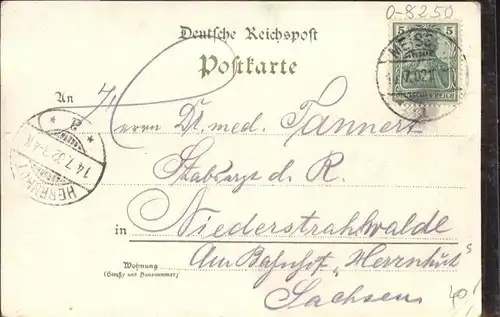 0-8250
Deutsche Reichspost
Postkarte
5 5
MEISS
7.02
REICH
An
Herrn Dr. med. Tannert
Stabsarzt d. R.
in Niederstrahwalde
Am Bahnhof „Herrnhut“
Sachsen
Wohnung
(Straße und Hausnummer)
HERRNHUT
14.7.02
* a *
40,